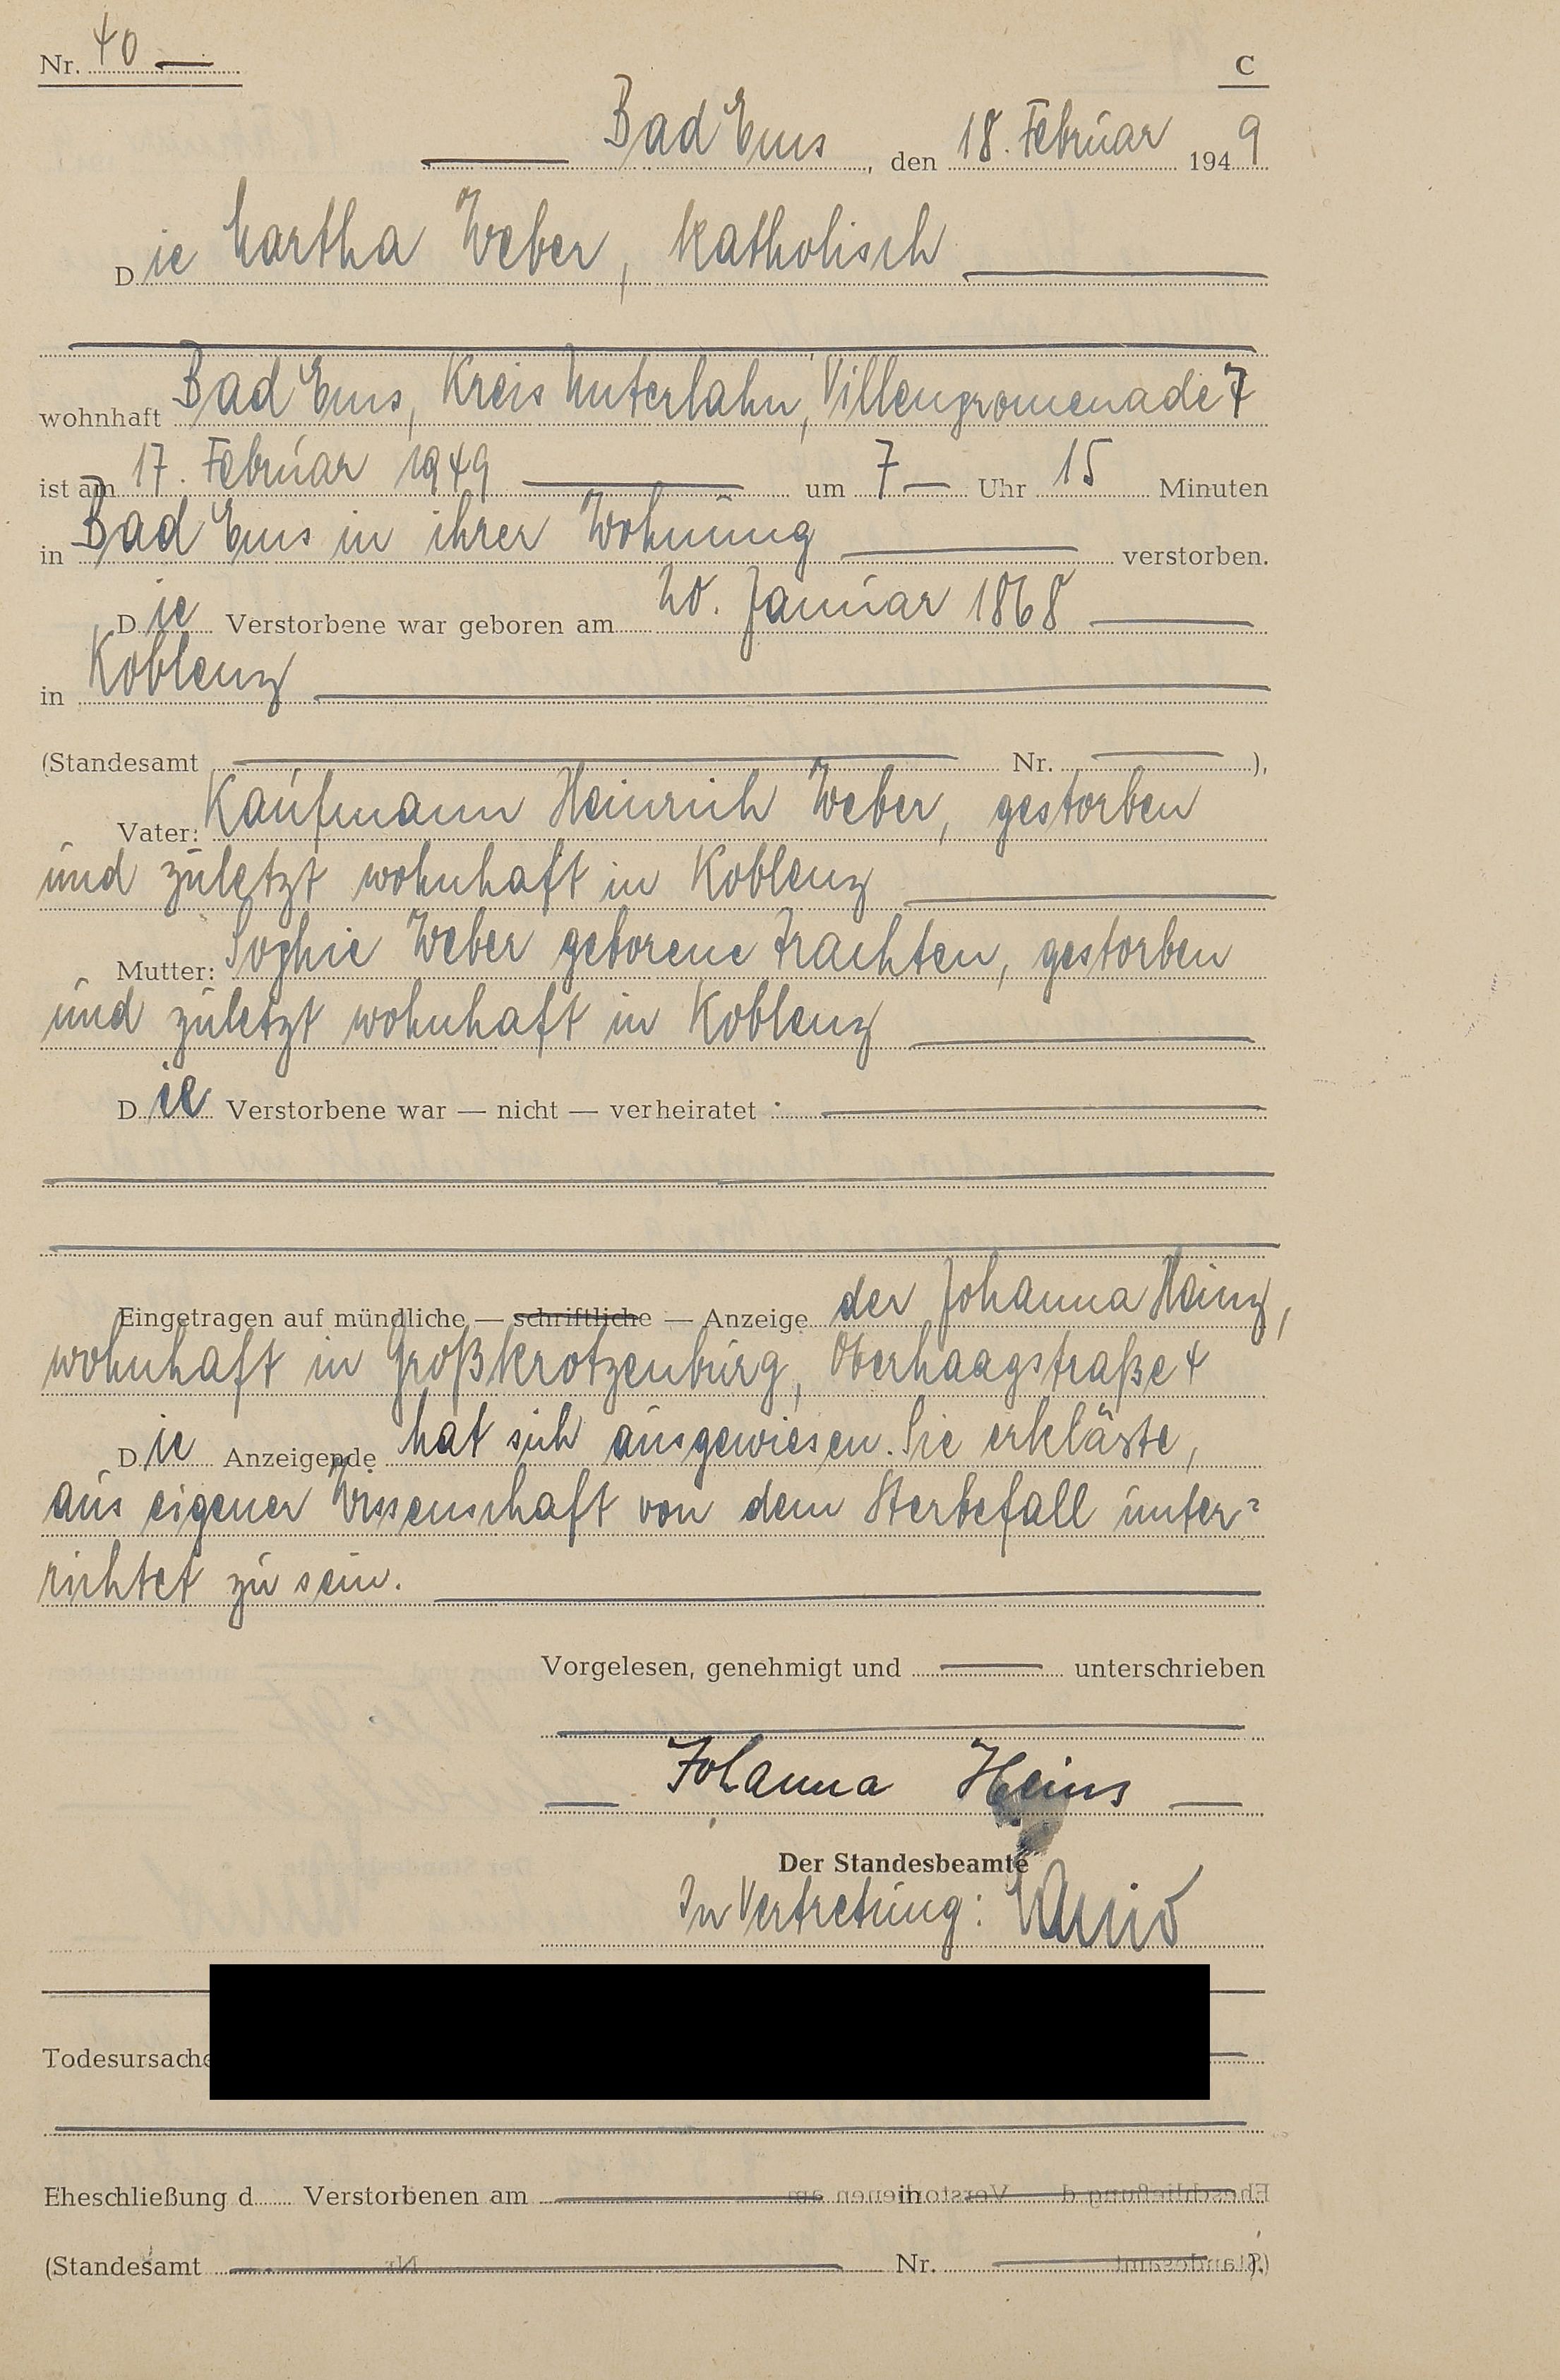 Nr. 40 —
C
Bad Ems, den 18. Februar 1949
Die Martha Weber, katholisch
wohnhaft Bad Ems, Kreis Unterlahn, Villenpromenade 7
ist am 17. Februar 1949 um 7 — Uhr 15 Minuten
in Bad Ems in ihrer Wohnung verstorben.
Die Verstorbene war geboren am 20. Januar 1868
in Koblenz
(Standesamt Nr. ),
Vater: Kaufmann Heinrich Weber, gestorben
und zuletzt wohnhaft in Koblenz
Mutter: Sophie Weber geborene Trachten, gestorben
und zuletzt wohnhaft in Koblenz
Die Verstorbene war — nicht — verheiratet.
Eingetragen auf mündliche — schriftliche — Anzeige der Johanna Heinz,
wohnhaft in Großkrotzenburg, Oberhaagstraße 4
Die Anzeigende hat sich ausgewiesen. Sie erklärte,
aus eigener Wissenschaft von dem Sterbefall unter=
richtet zu sein.
Vorgelesen, genehmigt und — unterschrieben
Johanna Heins
Der Standesbeamte
In Vertretung:
Todesursache
Eheschließung d Verstorbenen am in
(Standesamt Nr. ).